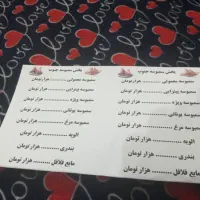 پخش سمبوسه جنوب
سمبوسه معمولی ........ هزارتومان
سمبوسه پیتزایی ........ هزار تومان
سمبوسه ویژه ........ هزار تومان
سمبوسه یونانی ........ هزارتومان
سمبوسه مرغ ........ هزار تومان
الویه ........ هزار تومان
بندری ........ هزار تومان
مایع فلافل ........ هزار تومان
پخش سمبوسه جنوب
سمبوسه معمولی ........ هزارتومان
سمبوسه پیتزایی ........ هزار تومان
سمبوسه ویژه ........ هزار تومان
سمبوسه یونانی ........ هزار تومان
سمبوسه مرغ ........ هزار تومان
الویه ........ هزار تومان
بندری ........ هزار تومان
مایع فلافل ........ هزار تومان